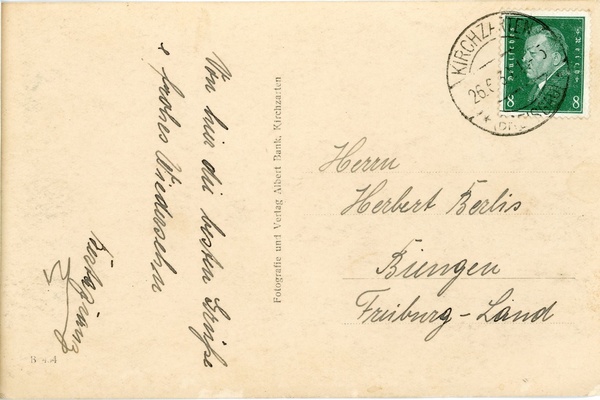 Von hier die besten Grüße
& frohes Wiedersehn
Fotografie und Verlag Albert Bank, Kirchzarten
KIRCHZARTEN
26.6.3
Deutsches Reich
8 8
Herrn
Herbert Berlis
Biengen
Freiburg-Land